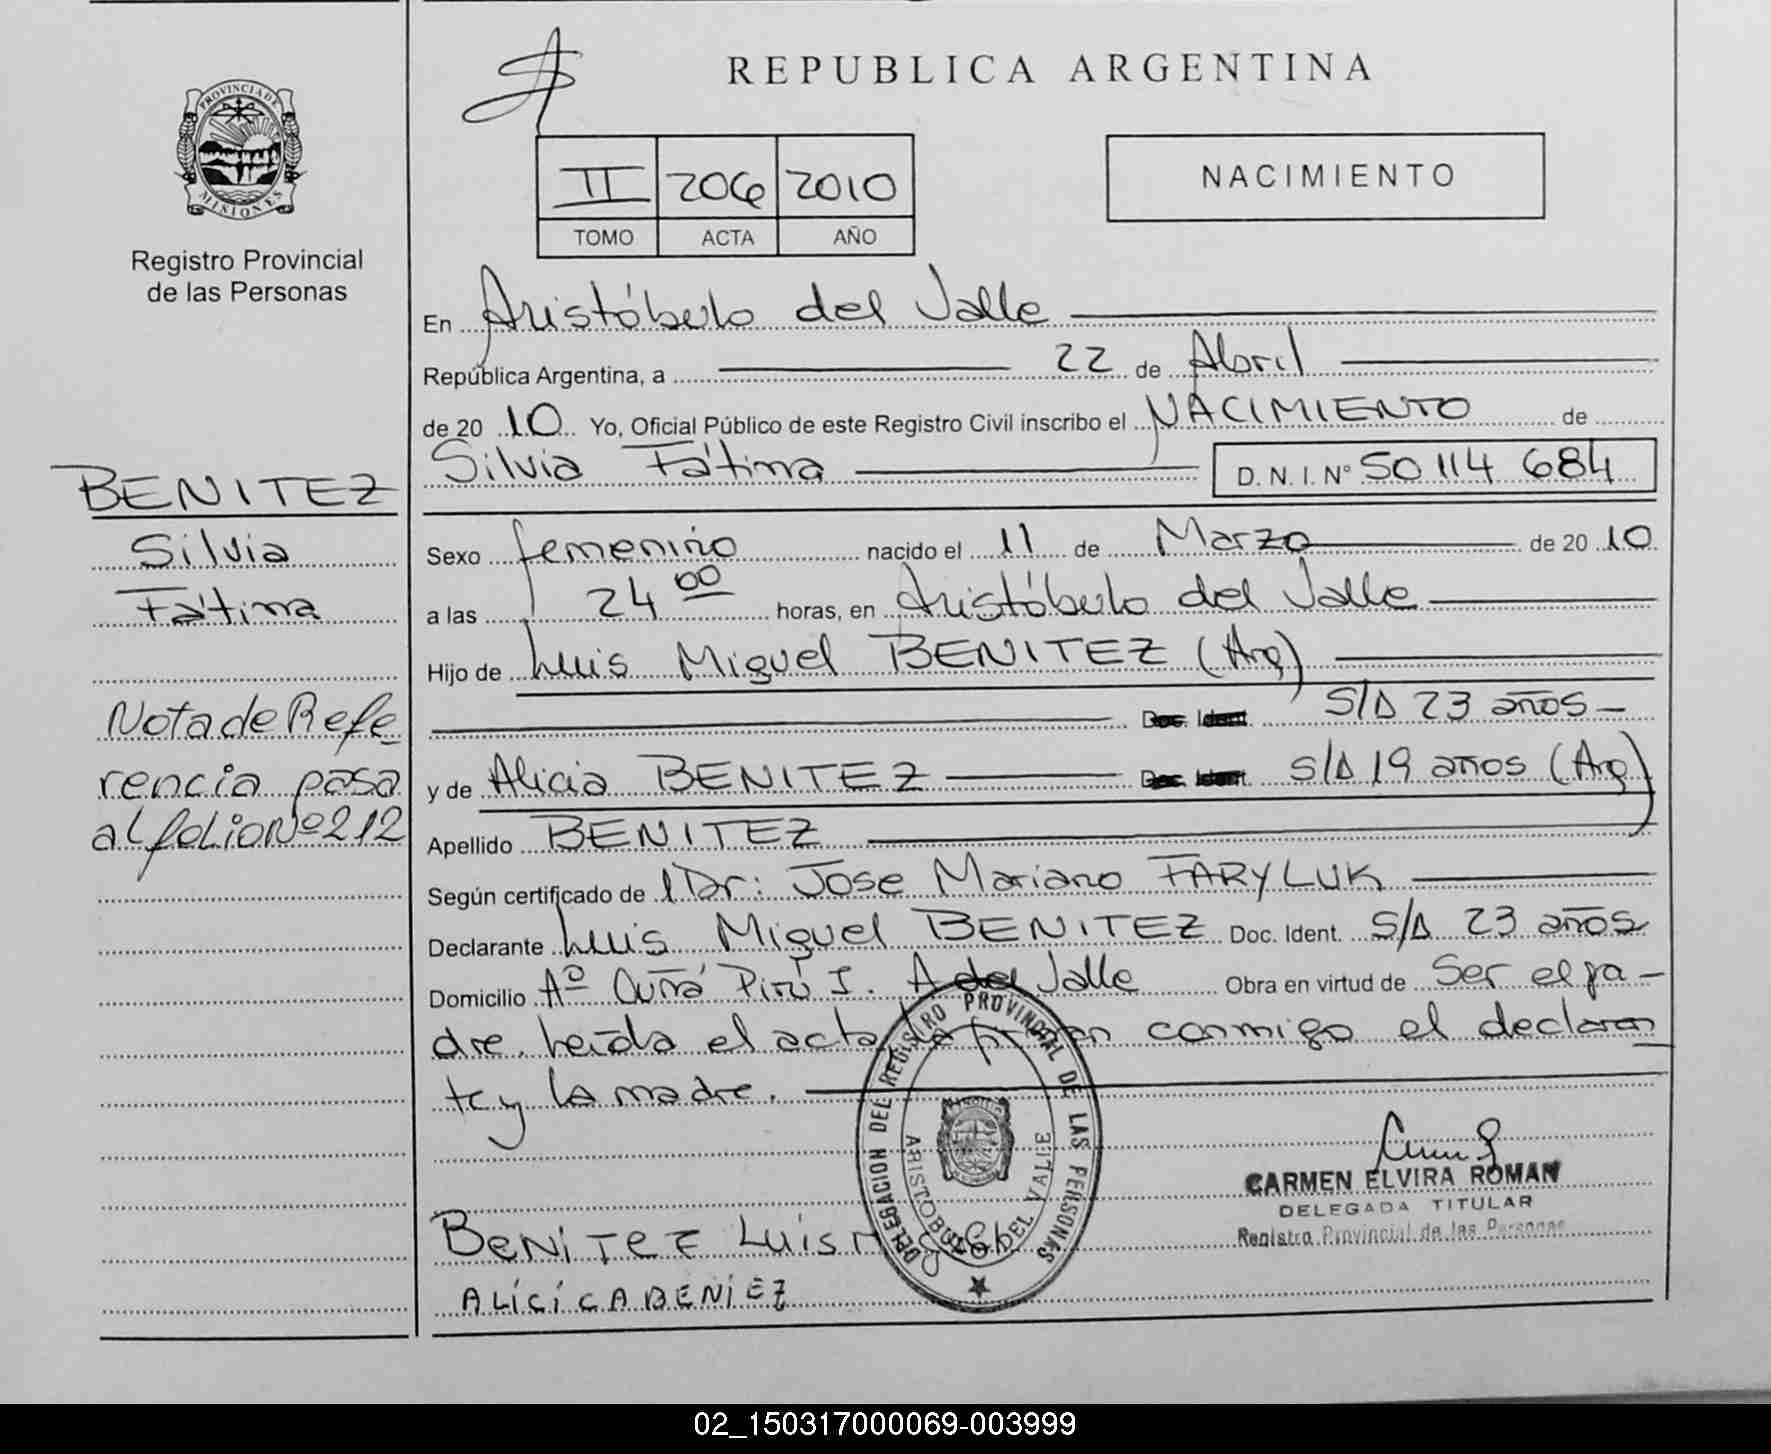 REPUBLICA ARGENTINA
PROVINCIA DE
MISIONES
Registro Provincial
de las Personas
II 206 2010
TOMO ACTA AÑO
NACIMIENTO
En Aristóbulo del Valle
República Argentina, a 22 de Abril
de 20 10 Yo, Oficial Público de este Registro Civil inscribo el NACIMIENTO de
Silvia Fátima D. N. I. Nº 50 114 684
BENITEZ
Silvia
Fátima
Nota de Refe
rencia pasa
al folio Nº 212
Sexo femenino nacido el 11 de Marzo de 20 10
a las 24 00 horas, en Aristóbulo del Valle
Hijo de Luis Miguel BENITEZ (Arg)
Doc. Ident. S/D 23 años
y de Alicia BENITEZ Doc. Ident. S/D 19 años (Arg)
Apellido BENITEZ
Según certificado de Dr: Jose Mariano FARYLUK
Declarante Luis Miguel BENITEZ Doc. Ident. S/D 23 años
Domicilio Aº Cuñá Pirú I. A del Valle Obra en virtud de Ser el pa-
dre. Leída el acta la firman conmigo el declaran
te y la madre.
DELEGACION DEL REGISTRO PROVINCIAL DE LAS PERSONAS
ARISTOBULO DEL VALLE
CARMEN ELVIRA ROMAN
DELEGADA TITULAR
Registro Provincial de las Personas
BeNiTeZ Luis
ALiCiCABENiEZ
02_150317000069-003999